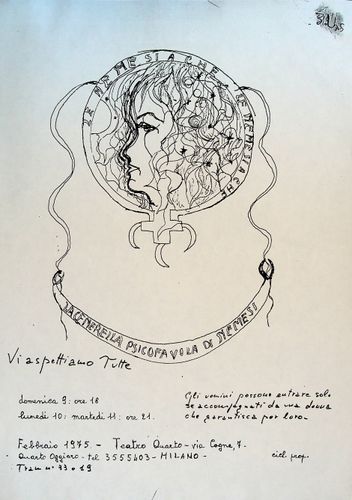 LE NEMESIACHE LE NEMESIACHE
LA CENERELLA PSICOFAVOLA DI NEMESI
Vi aspettiamo Tutte
domenica 9: ore 18
lunedì 10: martedì 11: ore 21.
Gli uomini possono entrare solo
se accompagnati da una donna
che garantisca per loro.
Febbraio 1975 - Teatro Quarto - via Cogne, 7.
Quarto Oggiaro - tel 3555403 - MILANO -
Tram n° 33 e 19
cicl. prop.